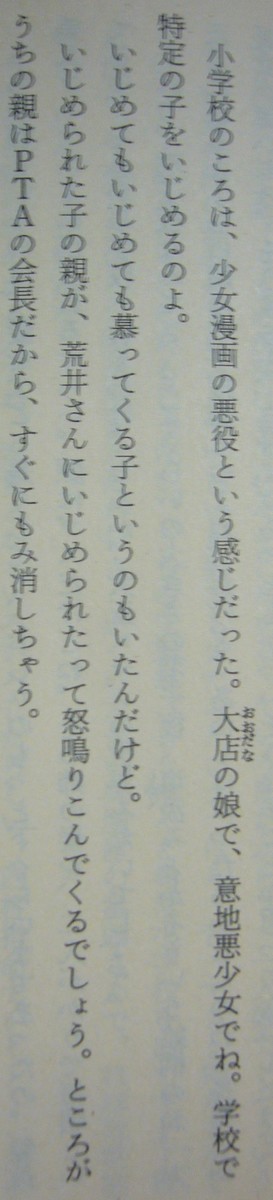 小学校のころは、少女漫画の悪役という感じだった。大店の娘で、意地悪少女でね。学校で
おおだな
特定の子をいじめるのよ。
いじめてもいじめても慕ってくる子というのもいたんだけど。
いじめられた子の親が、荒井さんにいじめられたって怒鳴りこんでくるでしょう。ところが
うちの親はＰＴＡの会長だから、すぐにもみ消しちゃう。